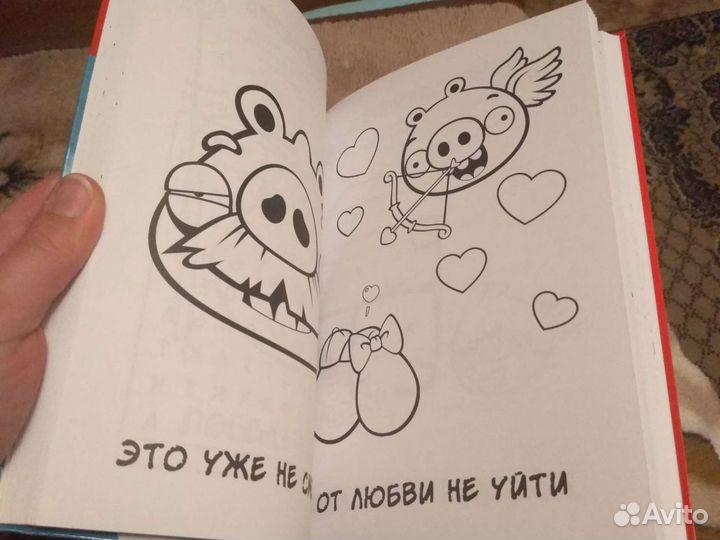 ЭТО УЖЕ НЕ
ОТ ЛЮБВИ НЕ УЙТИ
Avito